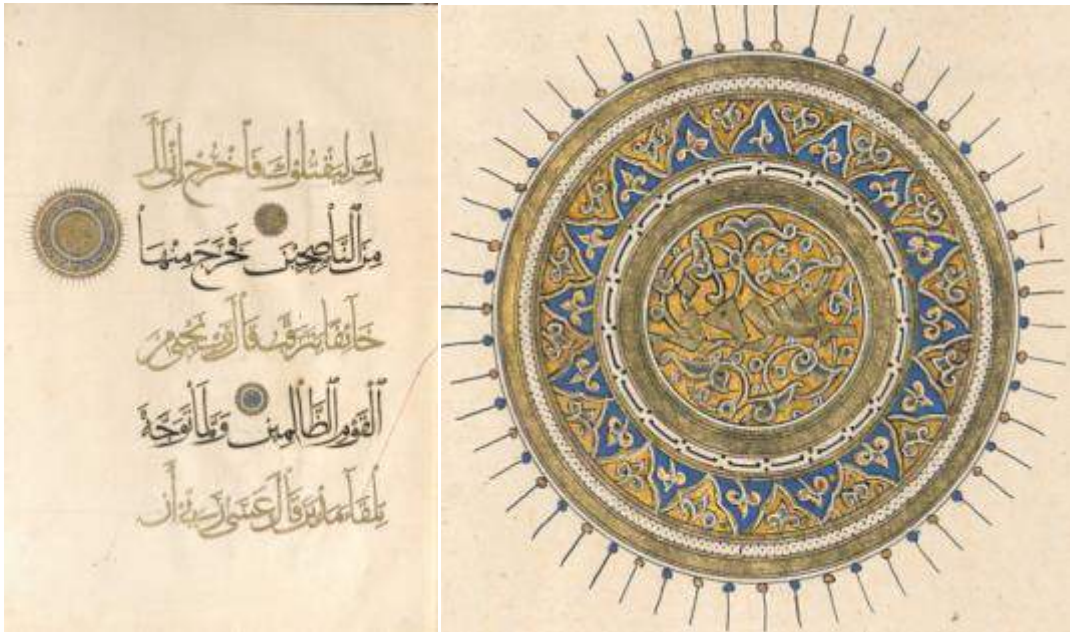 بِكَ لِيَقْتُلُوكَ فَاخْرُجْ إِنِّي لَكَ
مِنَ النَّاصِحِينَ فَخَرَجَ مِنْهَا
خَائِفًا يَتَرَقَّبُ قَالَ رَبِّ نَجِّنِي مِنَ
الْقَوْمِ الظَّالِمِينَ وَلَمَّا تَوَجَّهَ
تِلْقَاءَ مَدْيَنَ قَالَ عَسَى رَبِّي أَنْ